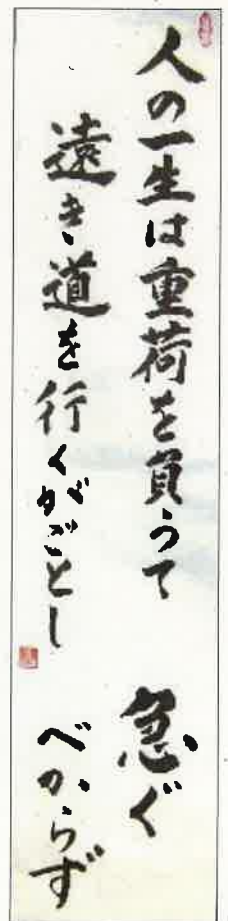 人の一生は重荷を負うて
遠き道を行くがごとし
急ぐ
べからず